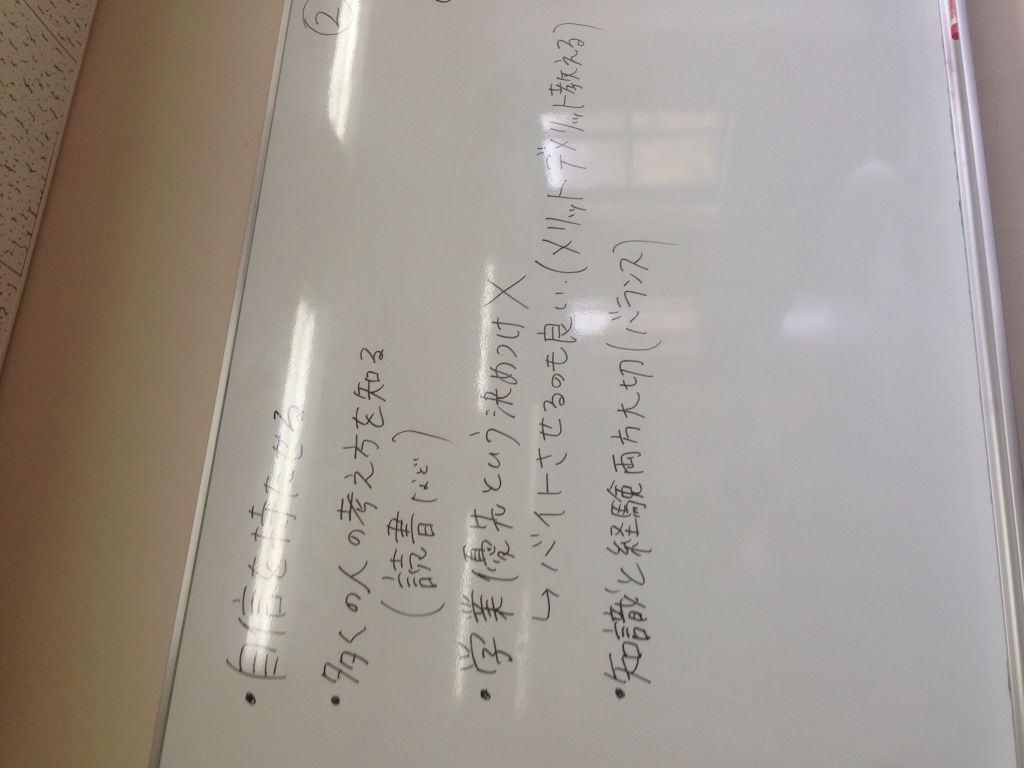 ②
・自信を持たせる
・多くの人の考え方を知る
(読書など)
・学業優先という決めつけ X
↳ バイトさせるのも良い.(メリット・デメリット教える)
・知識と経験両方大切(バランス)